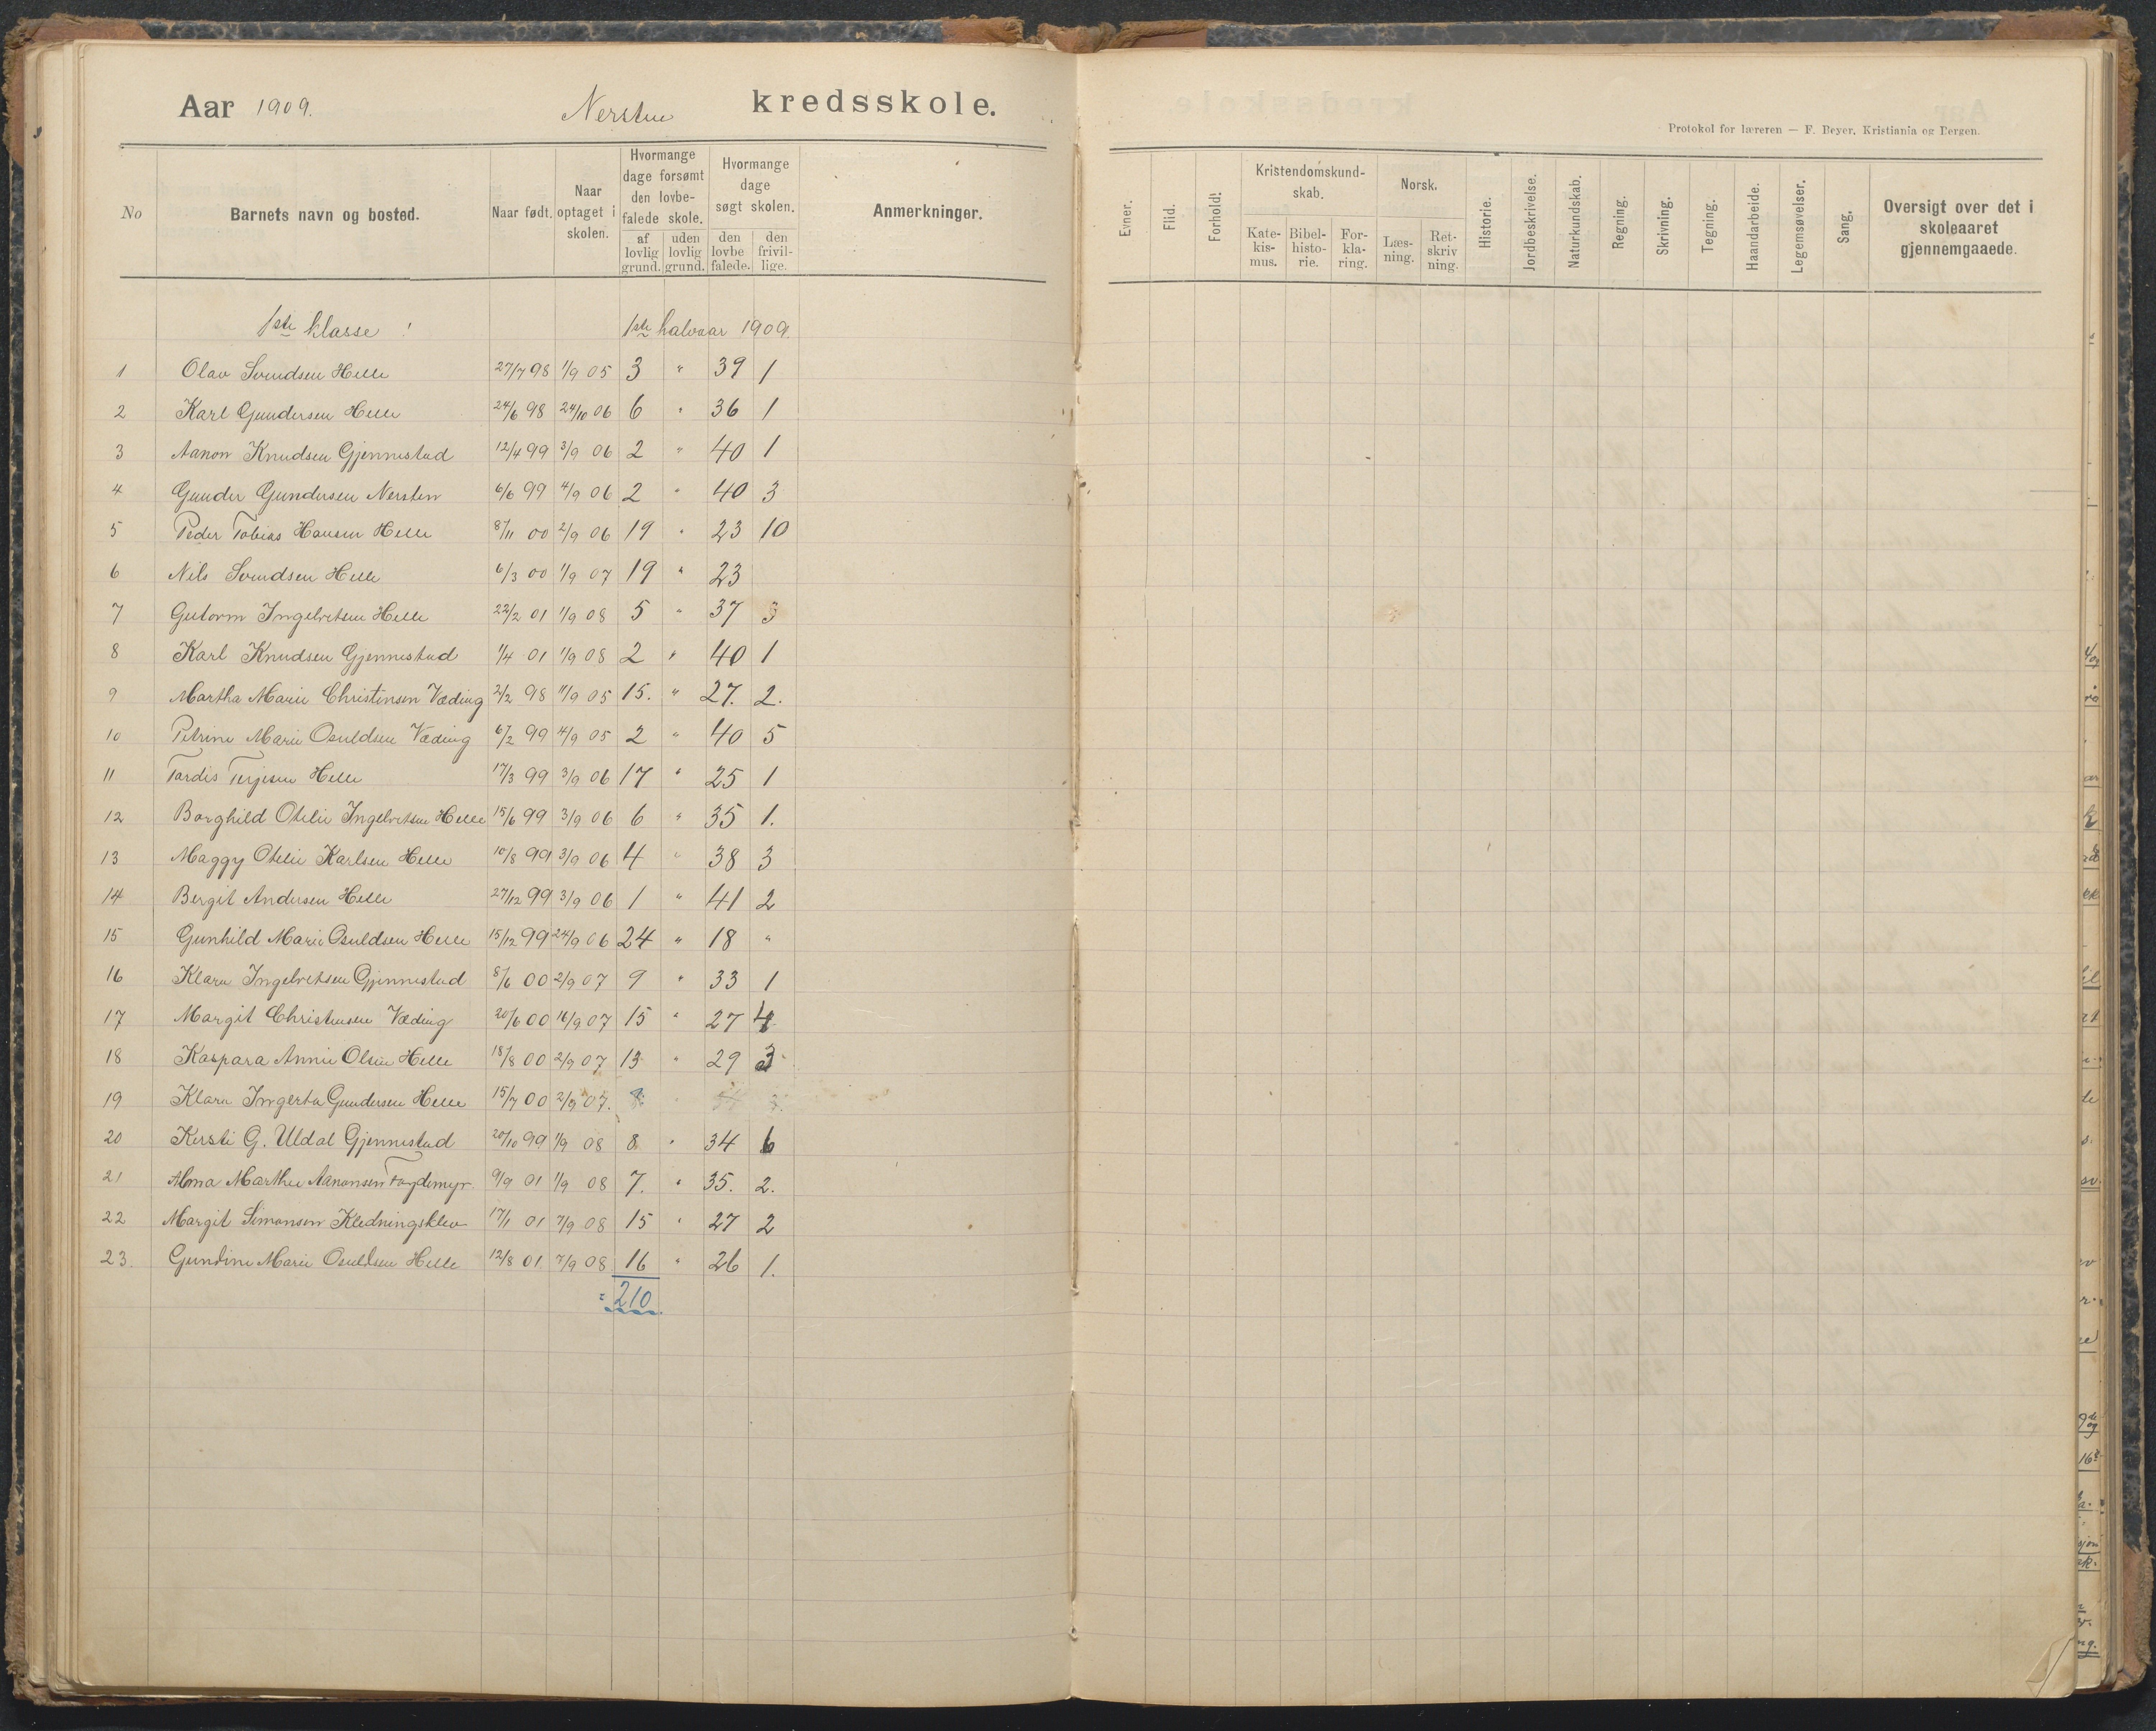 Aar 1909. Nersten kredsskole.
Protokol for læreren — F. Beyer. Kristiania og Bergen.
No Barnets navn og bosted. Naar født. Naar optaget i skolen. Hvormange dage forsømt den lovbefalede skole. af lovlig grund. uden lovlig grund. Hvormange dage søgt skolen. den lovbefalede. den frivillige. Anmerkninger.
Evner. Flid. Forhold! Kristendomskundskab. Katekismus. Bibelhistorie. Forklaring. Norsk. Læsning. Retskrivning. Historie. Jordbeskrivelse. Naturkundskab. Regning. Skrivning. Tegning. Haandarbeide. Legemsøvelser. Sang. Oversigt over det i skoleaaret gjennemgaaede.
1ste klasse! 1ste halvaar 1909.
1 Olav Svendsen Helle 27/7 98 1/9 05 3 " 39 1
2 Karl Gundersen Helle 24/6 98 24/10 06 6 " 36 1
3 Aanon Knudsen Gjennestad 12/4 99 3/9 06 2 " 40 1
4 Gunder Gundersen Nersten 6/6 99 4/9 06 2 " 40 3
5 Peder Tobias Hansen Helle 8/11 00 2/9 06 19 " 23 10
6 Nils Svendsen Helle 6/3 00 1/9 07 19 " 23
7 Gutorm Ingelvetsen Helle 22/2 01 1/9 08 5 " 37 3
8 Karl Knudsen Gjennestad 1/4 01 1/9 08 2 " 40 1
9 Martha Marie Christensen Væding 2/2 98 11/9 05 15. " 27. 2.
10 Petrine Marie Osuldsen Væding 6/2 99 4/9 05 2 " 40 5
11 Tordis Terjesen Helle 17/3 99 3/9 06 17 " 25 1
12 Borghild Otelie Ingelvetsen Helle 15/6 99 3/9 06 6 " 35 1.
13 Maggy Otelie Karlsen Helle 10/8 99 3/9 06 4 " 38 3
14 Bergit Andersen Helle 27/12 99 3/9 06 1 " 41 2
15 Gunhild Marie Osuldsen Helle 15/12 99 24/9 06 24 " 18 "
16 Klara Ingelvetsen Gjennestad 8/6 00 2/9 07 9 " 33 1
17 Margit Christensen Væding 20/6 00 16/9 07 15 " 27 4
18 Kaspara Annie Olsen Helle 18/8 00 2/9 07 13 " 29 3
19 Klara Ingerta Gundersen Helle 15/7 00 2/9 07.
20 Kersti G. Uldal Gjennestad 20/10 99 1/9 08 8 " 34 6
21 Alma Marthee Aanonsen 9/9 01 1/9 08 7. " 35. 2.
22 Margit Simonsen Kledningsklev 17/1 01 7/9 08 15 " 27 2
23. Gundine Marie Osuldsen Helle 12/8 01 7/9 08 16 " 26 1.
= 210.